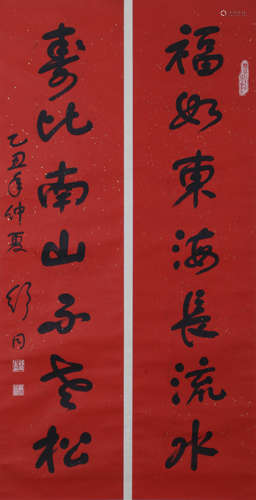 福如東海長流水
壽比南山不老松
乙丑年仲夏
舒同